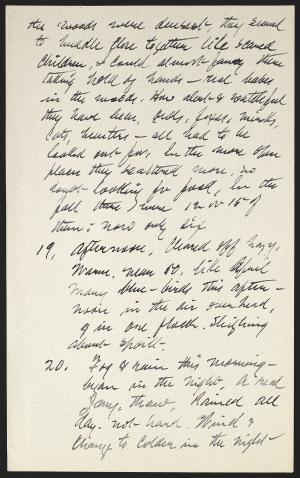 the woods were densest, they seemed
to huddle close together like scared
children, & could almost fancy them
taking hold of hands — real babes
in the woods. How alert & watchful
they have been, owls, foxes, minks,
cats, hunters — all had to be
looked out for. In the more open
places they scattered more, no
doubt looking for food, In the
fall there were 12 or 15 of
them; now only six
19, Afternoon, Cleared off hazy,
Warm, near 50, like April
many blue-birds this after-
noon in the air over head,
9 in one flock. Sleighing
about spoilt.
20. Fog & rain this morning—
began in the night, A real
Jany. thaw, Rained all
day. not hard. Wind &
change to colder in the night